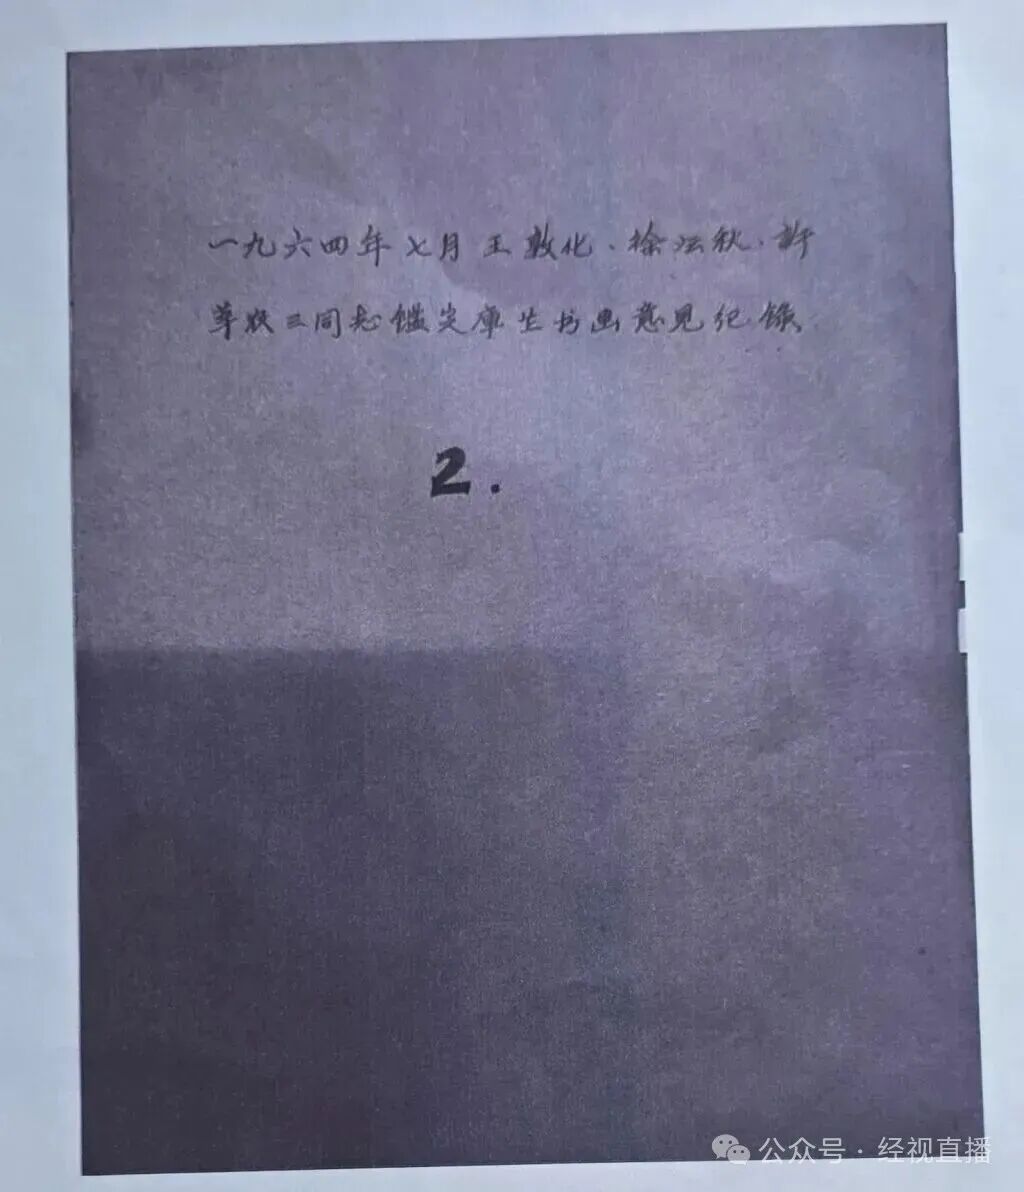 一九六四年七月王敦化、徐沄秋、許
莘农三同志鑑定庫生书画意见纪錄
2.
公众号·经视直播